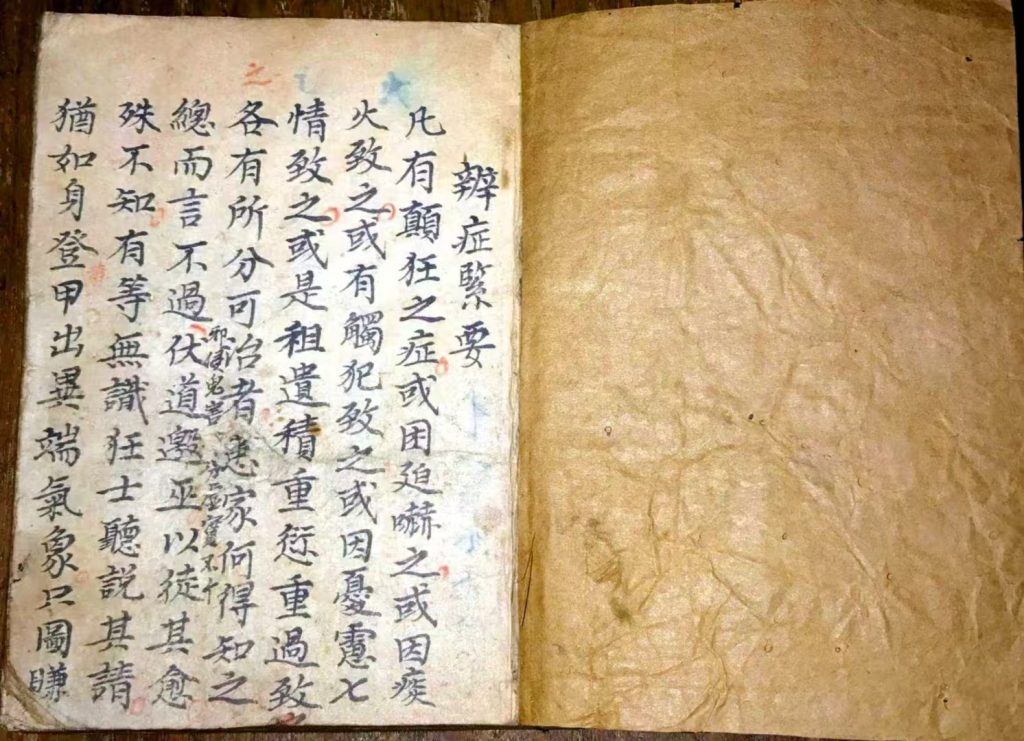 辨症緊要
凡有顛狂之症或困廹嚇之或因痰
火致之或有觸犯致之或因憂慮七
情致之或是祖遺積重愆重過致
之
各有所分可治者患家何得知之
邪侵鬼害
總而言不過伏道邀巫以徒其愈
殊不知有等無識狂士聽説其請
猶如身登甲出異端氣象只圖賺